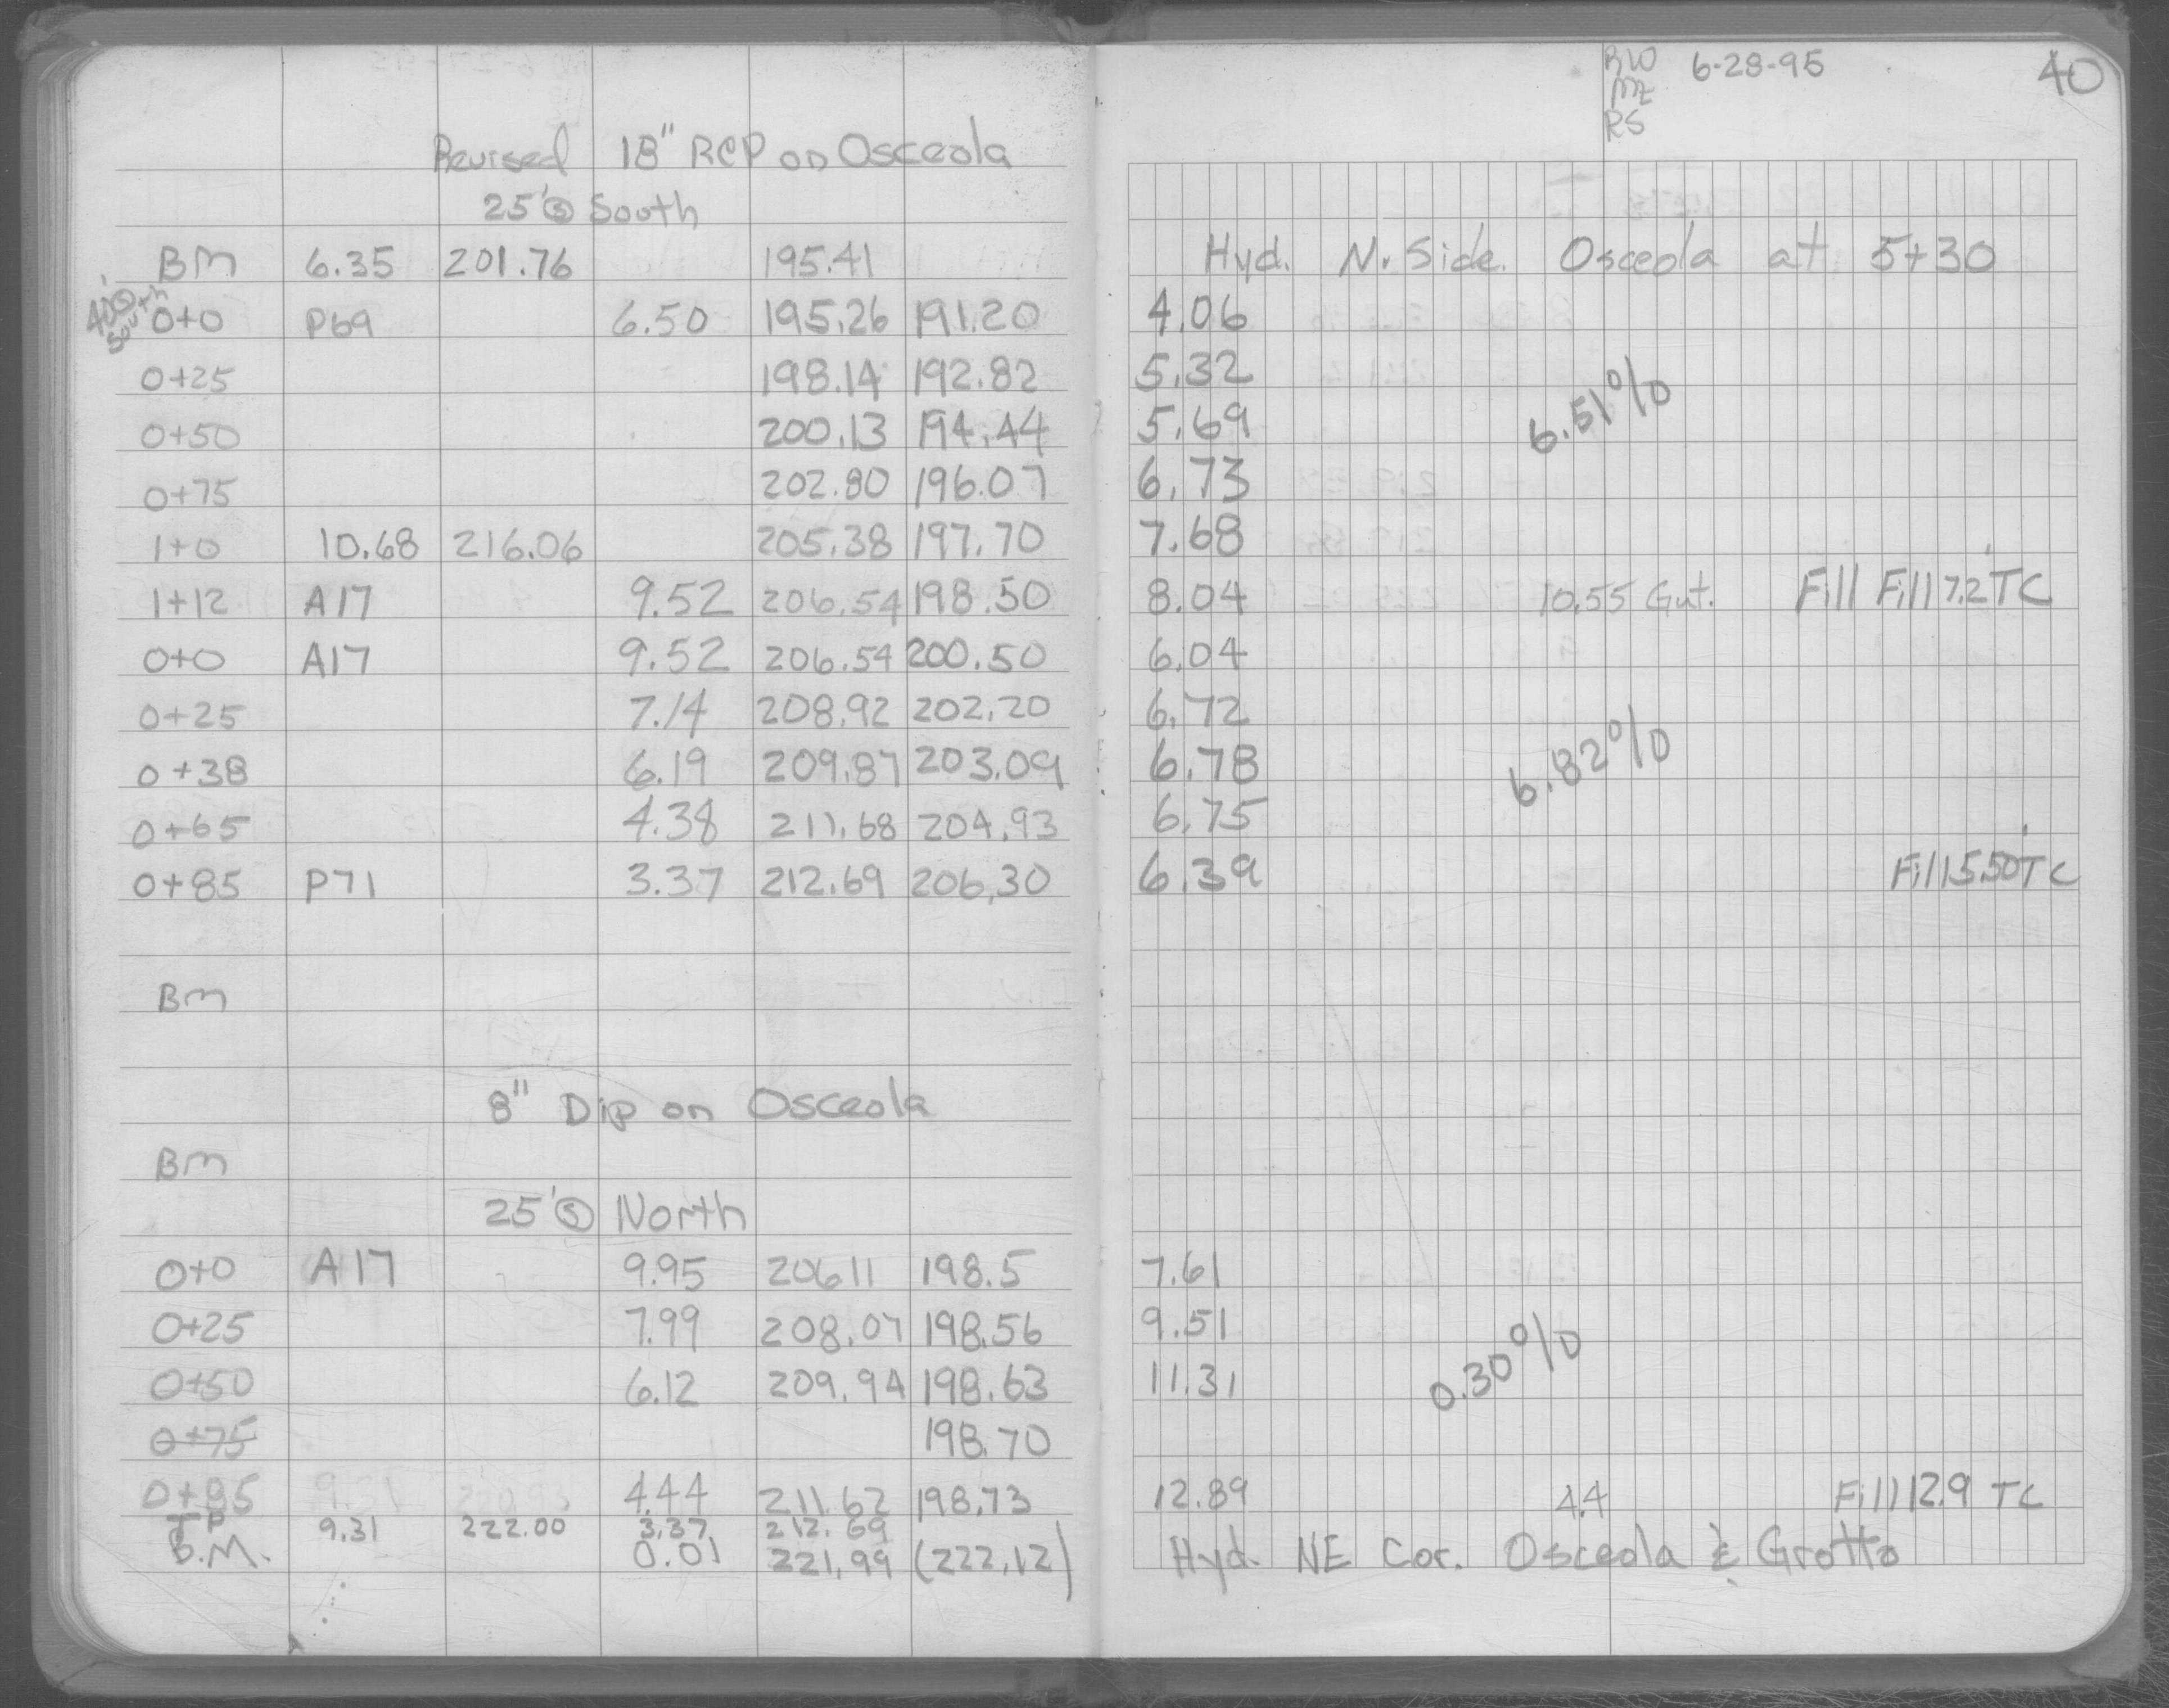 RW 6-28-95 40
MZ
RS
Revised 18" RCP on Osceola
25' ⓢ South
BM 6.35 201.76 195.41 Hyd. N. Side Osceola at 5+30
40ⓢ South
0+0 P69 6.50 195.26 191.20 4.06
0+25 198.14 192.82 5.32
0+50 200.13 194.44 5.69 6.51%
0+75 202.80 196.07 6.73
1+0 10.68 216.06 205.38 197.70 7.68
1+12 A17 9.52 206.54 198.50 8.04 10.55 Gut. Fill Fill 7.2 TC
0+0 A17 9.52 206.54 200.50 6.04
0+25 7.14 208.92 202.20 6.72
0+38 6.19 209.87 203.09 6.78 6.82%
0+65 4.38 211.68 204.93 6.75
0+85 P71 3.37 212.69 206.30 6.39 Fill 5.50 TC
BM
8" Dip on Osceola
BM
25' ⓢ North
0+0 A17 9.95 206 11 198.5 7.61
0+25 7.99 208.07 198.56 9.51
0+50 6.12 209.94 198.63 11.31 0.30%
0+75 198.70
0+85 4.44 211.62 198.73 12.89 4.4 Fill 12.9 TC
TP 9.31 222.00 3.37 212.69
B.M. 0.01 221.99 (222.12) Hyd. NE Cor. Osceola & Grotto